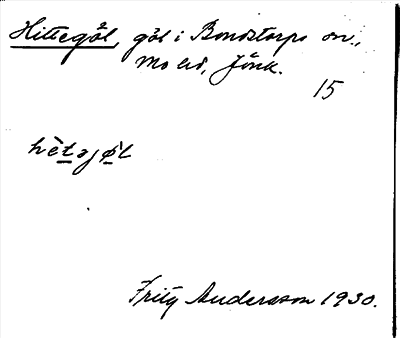 Hittegöl, göl i Bondstorps sn.,
Mo hd, Jönk.
15
hètəjø̀l
Fritz Andersson 1930.